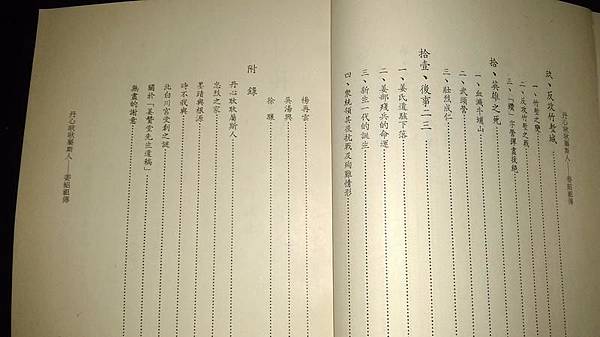 丹心耿耿屬斯人——姜紹祖傳
玖、反攻竹塹城
一、竹塹之變
二、反攻竹塹之戰
三、「纘」字營譯畫後綴
拾、英雄之死
一、血濺赤埔山
二、武頭營
三、壯烈成仁
拾壹、後事二三
一、姜氏遺駭下落
二、姜部殘兵的命運
三、新生一代的誕生
四、眾統領其後抗戰及殉難情形
楊再雲
吳湯興
徐驤
附錄
丹心耿耿屬斯人
忠烈之家
墨蹟與根源
時不我與
北白川宮受創之謎
關於「姜贊堂先生遺稿」
無盡的謝意
丹心耿耿屬斯人——姜紹祖傳